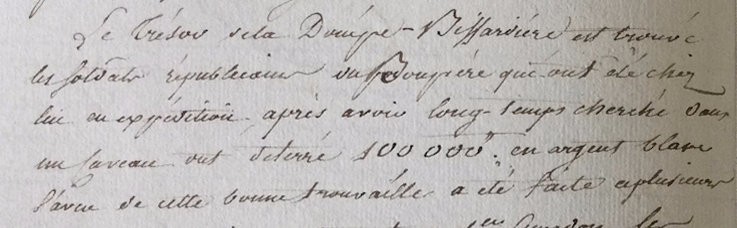 Le trésor de la Douépe-Biffardière est trouvé
les soldats républicains du Boupère qui ont été chez
lui en expédition après avoir long-temps cherché dans
un caveau ont déterré 100000" en argent blanc
l'aveu de cette bonne trouvaille a été faite a plusieurs